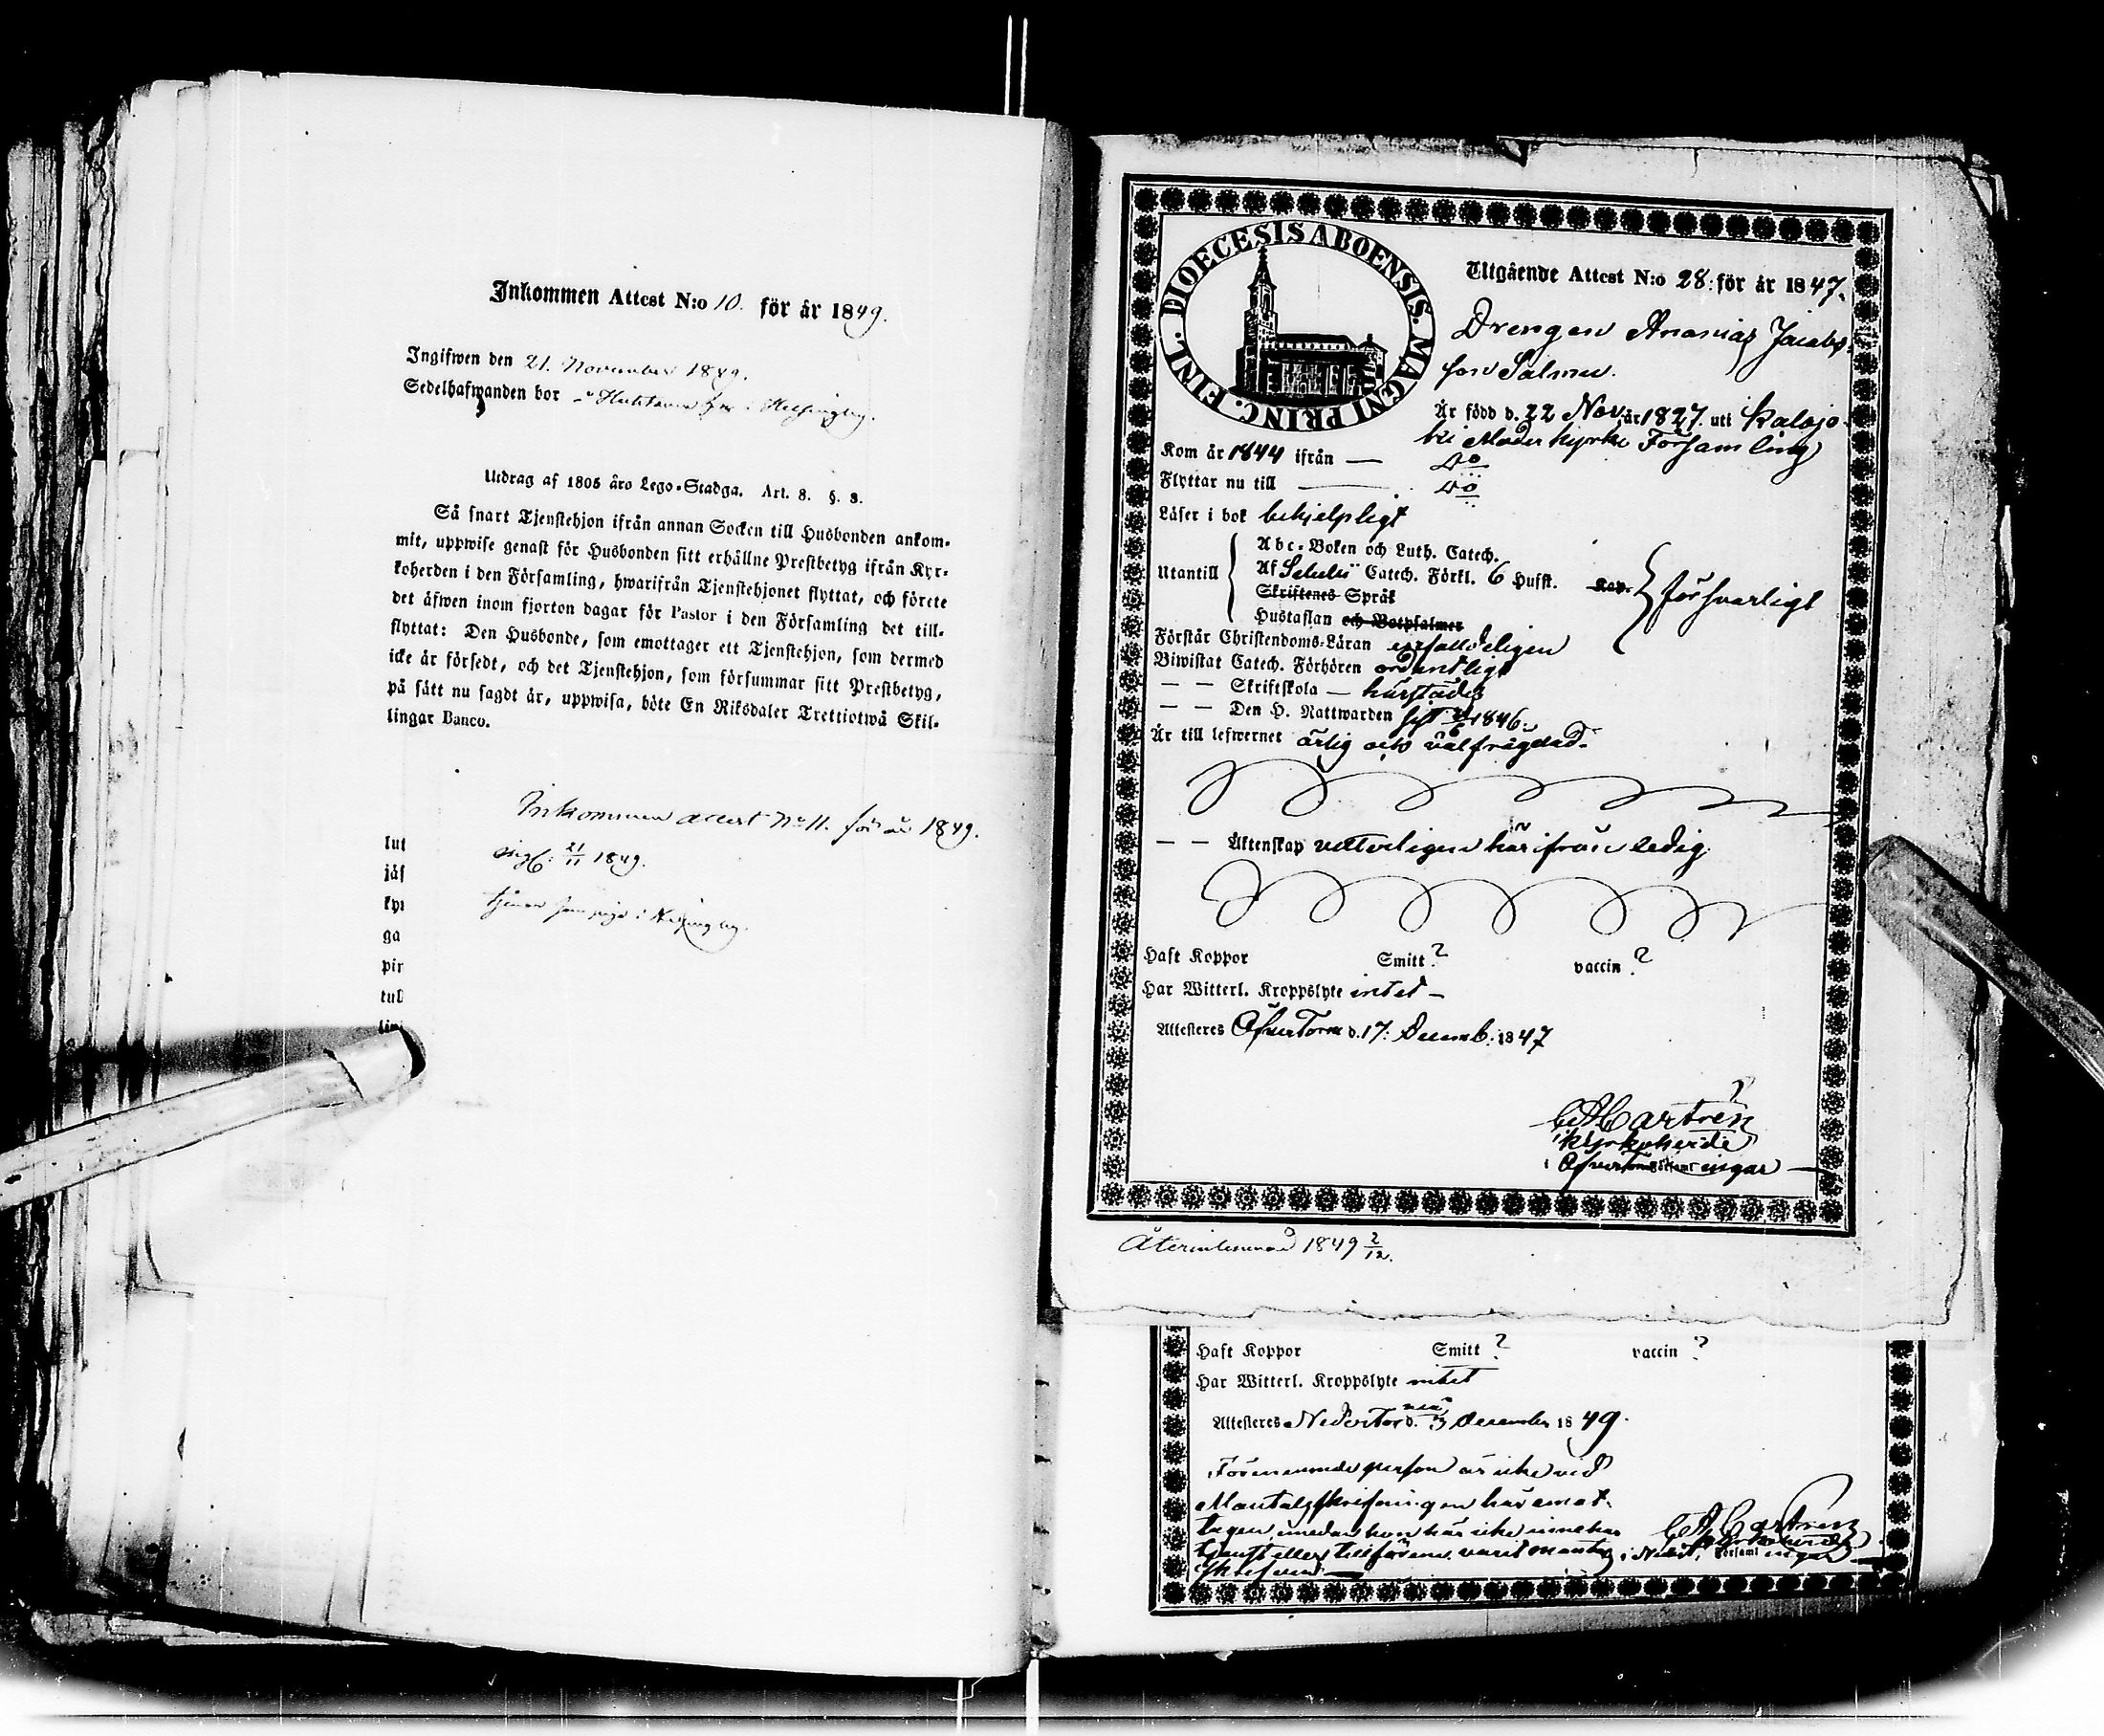 Inkommen Attest N:o 10. för år 1849.
Ingifwen den 21. November 1849.
Sedelhafwanden bor i Helsingby.
Utdrag af 1805 års Lego-Stadga. Art. 8. §. 8.
Så snart Tjenstehjon ifrån annan Socken till Husbonden ankom-
mit, uppwise genast för Husbonden sitt erhållne Prestbetyg ifrån Kyr-
koherden i den Församling, hwarifrån Tjenstehjonet flyttat, och förete
det äfwen inom fjorton dagar för Pastor i den Församling det till-
flyttat: Den Husbonde, som emottager ett Tjenstehjon, som dermed
icke är försedt, och det Tjenstehjon, som försummar sitt Prestbetyg,
på sätt nu sagdt är, uppwisa, böte En Riksdaler Trettiotwå Skil-
lingar Banco.
Inkommen attest No 11. för år 1849.
Ingf. 21/11 1849.
tjenar i Helsingby.
lut
jäf
kyr
ga
pir
tul
DIOECESIS ABOENSIS. MAGNI PRINC. FINL.
Utgående Attest N:o 28: för år 1847.
Drengen Ananias Jacobs-
son Salmu.
Är född d. 22 Nov. år 1827. uti Kalajo-
ki Moderkyrko Församling
Kom år 1844 ifrån — Do
Flyttar nu till — Do
Läser i bok behjelpligt
Utantill
Abc-Boken och Luth. Catech.
Af Sebelii Catech. Förkl. 6 Hufst. Kap. försvarligt
Skriftenes Språk
Hustaflan och Botpsalmer
Förstår Christendoms-Läran enfalldeligen
Biwistat Catech. Förhören ordentligt
— — Skriftskola — härstädes
— — Den H. Nattwarden 1846.
Är till lefwernet ärlig och välfrägdad.
— — Äktenskap vetterligen härifrån ledig.
Haft Koppor Smitt? vaccin?
Har Witterl. Kroppslyte intet —
Attesteras Öfver Torne d. 17. Decemb. 1847
C A Cartrén
Kyrkoherde
i Öfvertorne Församl ingar —
Återinlemnad 1849 2/12.
Haft Koppor Smitt? vaccin?
Har Witterl. Kroppslyte intet
Attesteras Neder Torneå d. 3 December 1849.
Förenämnde person är icke vid
Mantalsskrifningen här emot-
tagen, emedan hon här icke innehar
tjenst eller tillförene varit mantals
skrifven. —
C A Cartrén
Kyrkoherde
i Nedert. Församl ingar